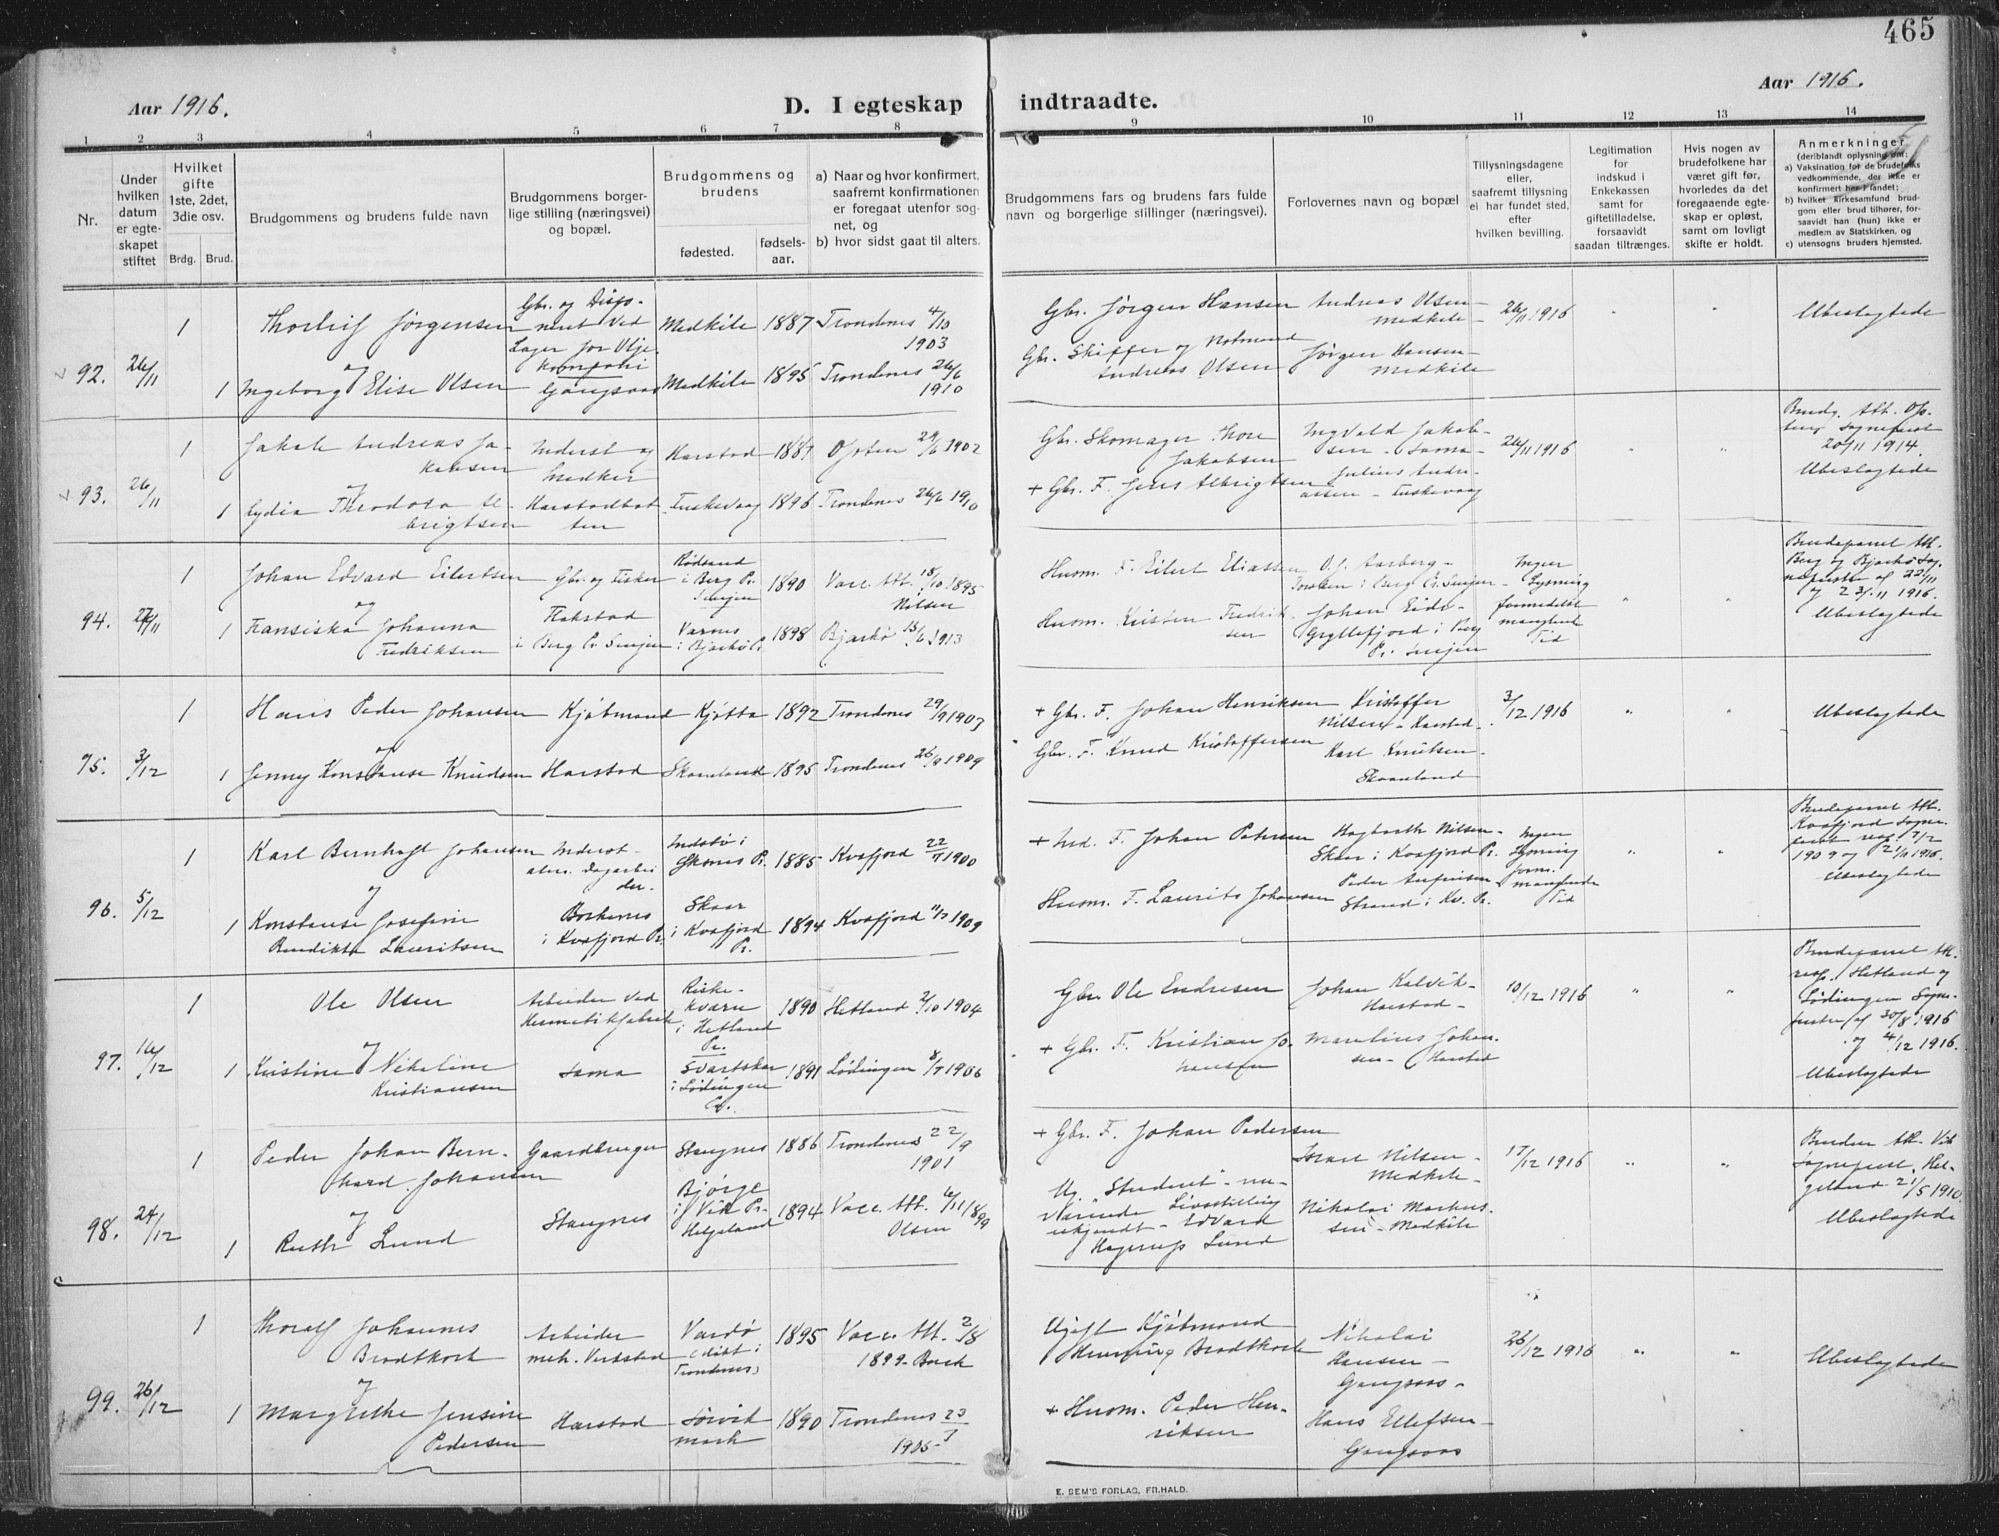 465
Aar 1916.
D. I egteskap indtraadte.
Aar 1916.
1 2 3 4 5 6 7 8 9 10 11 12 13 14
Nr.
Under hvilken datum er egteskapet stiftet
Hvilket gifte 1ste, 2det, 3die osv.
Brdg. Brud.
Brudgommens og brudens fulde navn
Brudgommens borgerlige stilling (næringsvei) og bopæl.
Brudgommens og brudens
fødested. fødselsaar.
a) Naar og hvor konfirmert, saafremt konfirmationen er foregaat utenfor sognet, og
b) hvor sidst gaat til alters.
Brudgommens fars og brudens fars fulde navn og borgerlige stillinger (næringsvei).
Forlovernes navn og bopæl
Tillysningsdagene eller, saafremt tillysning ei har fundet sted, efter hvilken bevilling.
Legitimation for indskud i Enkekassen samt for giftetilladelse, forsaavidt saadan tiltrænges.
Hvis nogen av brudefolkene har været gift før, hvorledes da det foregaaende egteskap er opløst, samt om lovligt skifte er holdt.
Anmerkninger
(deriblandt oplysning om:
a) Vaksination før de brudefolks vedkommende, der ikke er konfirmert har fundet;
b) hvilket kirkesamfund brudgom eller brud tilhører, forsaavidt han (hun) ikke er medlem av Statskirken, og
c) utensogns bruders hjemsted.
92. 26/11
1 Thorleif Jørgensen
Gbr. og Dispo-
nent ved
Lager for Olje-
kompani
Gangsaas
Medkile 1887 Trondenes 4/10
1903
Gbr. Jørgen Hansen
Andreas Olsen -
Medkile -
26/11 1916 " "
Ubeslagtede
og
1 Ingeborg Elise Olsen
Medkile 1895 Trondenes 26/6
1910
Gbr. Skipper og Notmand
Andreas Olsen
Jørgen Hansen -
Medkile
93. 26/11
1 Jakob Andreas Ja-
kobsen
Inderst og
Snedker
Harstadbot-
ten
Harstad 1881 Ofoten 29/6 1902
Gbr. Skomager Thore
Jakobsen
Ingvald Jakob-
sen - Sama
26/11 1916 " "
Brudg. Att. Ofo-
tens Sogneprest
20/11 1914.
Ubeslagtede
og
1 Lydia Theodora Al-
brigtsen
Fuskevaag 1896 Trondenes 26/6 1910
+ Gbr. F. Jens Albrigtsen
Julius Andre-
assen - Fuskevaag
94. 27/11
1 Johan Edvard Eilertsen
Gbr. og Fisker
Flakstad
i Berg Pr. Senjen
Rødsand
i Berg Pr.
Senjen
1890 Vacc. Att. 18/10 1895
Nilsen
Husm. F. Eilert Eliassen
O. J. Aarberg -
Torsken i Berg Pr. Senjen -
Ingen
Lysning
formedelst
manglende
Tid
" "
Brudeparret Att.
Berg og Bjarkø Sog-
neprester af 22/11
og 23/11 1916.
Ubeslagtede
og
1 Fransiska Johanna
Fredriksen
Varnes
i Bjarkø Pr.
1898 Bjarkø 15/6 1913
Husm. Kristen Fredrik-
sen
Johan Eide -
Gryllefjord i Berg
Pr. Senjen
95. 3/12
1 Hans Peder Johansen
Kjøbmand
Harstad
Kjøtta 1892 Trondenes 29/9 1907
+ Gbr. F. Johan Henriksen
Kristoffer
Nilsen - Harstad.
3/12 1916 " "
Ubeslagtede
og
1 Jenny Konstanse Knudsen
Skaanland 1895 Trondenes 26/9 1909
Gbr. F. Knud Kristoffersen
Karl Knutsen -
Skaanland
96. 5/12
1 Karl Bernhoft Johansen
Inderst -
alm. Dagarbei-
der.
Borkenes
i Kvæfjord Pr.
Indstø i
Skånes Pr. 1885 Kvæfjord 22/7 1900
+ Ind. F. Johan Petersen
Hagbarth Nilsen -
Skaar i Kvæfjord Pr.
Ingen
Lysning
form.
manglende
Tid
" "
Brudeparret Att.
Kvæfjord Sogne-
prest resp. 7/2
1909 og 21/11 1916.
Ubeslagtede
og
1 Konstanse Josefine
Benedikte Lauritsen
Skaar
i Kvæfjord
Pr.
1894 Kvæfjord 11/7 1909
Husm. F. Laurits Johansen
Strand i Kv. Pr.
97. 16/12
1 Ole Olsen
Arbeider ved
Hermetikfabrik
Riske-
kværn
i Hetland
Pr.
1890 Hetland 2/10 1904
Gbr. Ole Endresen
Johan Kalvik -
Harstad -
10/12 1916 " "
Brudeparret Att.
resp. Hetland og
Lødingen Sogne-
prester af 30/8 1916
og 4/12 1916.
Ubeslagtede
og
1 Kristine Nikoline
Kristiansen
Sama
Svartskar
i Lødingen
Pr.
1891 Lødingen 8/7 1906
+ Gbr. F. Kristian Jo-
hansen
Marelius Johan-
sen - Harstad
98. 24/12
1 Peder Johan Bern-
hard Johansen
Gaardbruger
Stangnes
Stangnes 1886 Trondenes 22/9
1901
+ Gbr. F. Johan Pedersen
Israel Nilsen -
Medkile -
17/12 1916 " "
Bruden Att. Vik
Sogneprest, Hel-
geland 21/5 1910
Ubeslagtede
og
1 Ruth Lund
Bjørge
i Vik Pr.
Helgeland
1894 Vacc. Att. 6/11 1899
Olsen
Ug. "Student" - nu-
værende Livsstilling
ukjendt - Edvard
Hagerup Lund
Nikolai Markus-
sen - Medkile
99. 26/12
1 Thoralf Johannes
Brodtkorb
Arbeider
mek. Verksted
Harstad
Vardø
(døbt i
Trondenes)
1895 Vacc. Att. 2/8
1899 - Bach
Ugift Kjøbmand
Henning Brodtkorb
Nikolai
Hansen -
Gangsaas -
26/12 1916 " "
Ubeslagtede
og
1 Margrethe Jensine
Pedersen
Sørvik
mark
1890 Trondenes 23/7
1905
+ Husm. Peder Hen-
riksen
Hans Ellefsen -
Gangsaas
E. SEM'S FORLAG, FR.HALD.